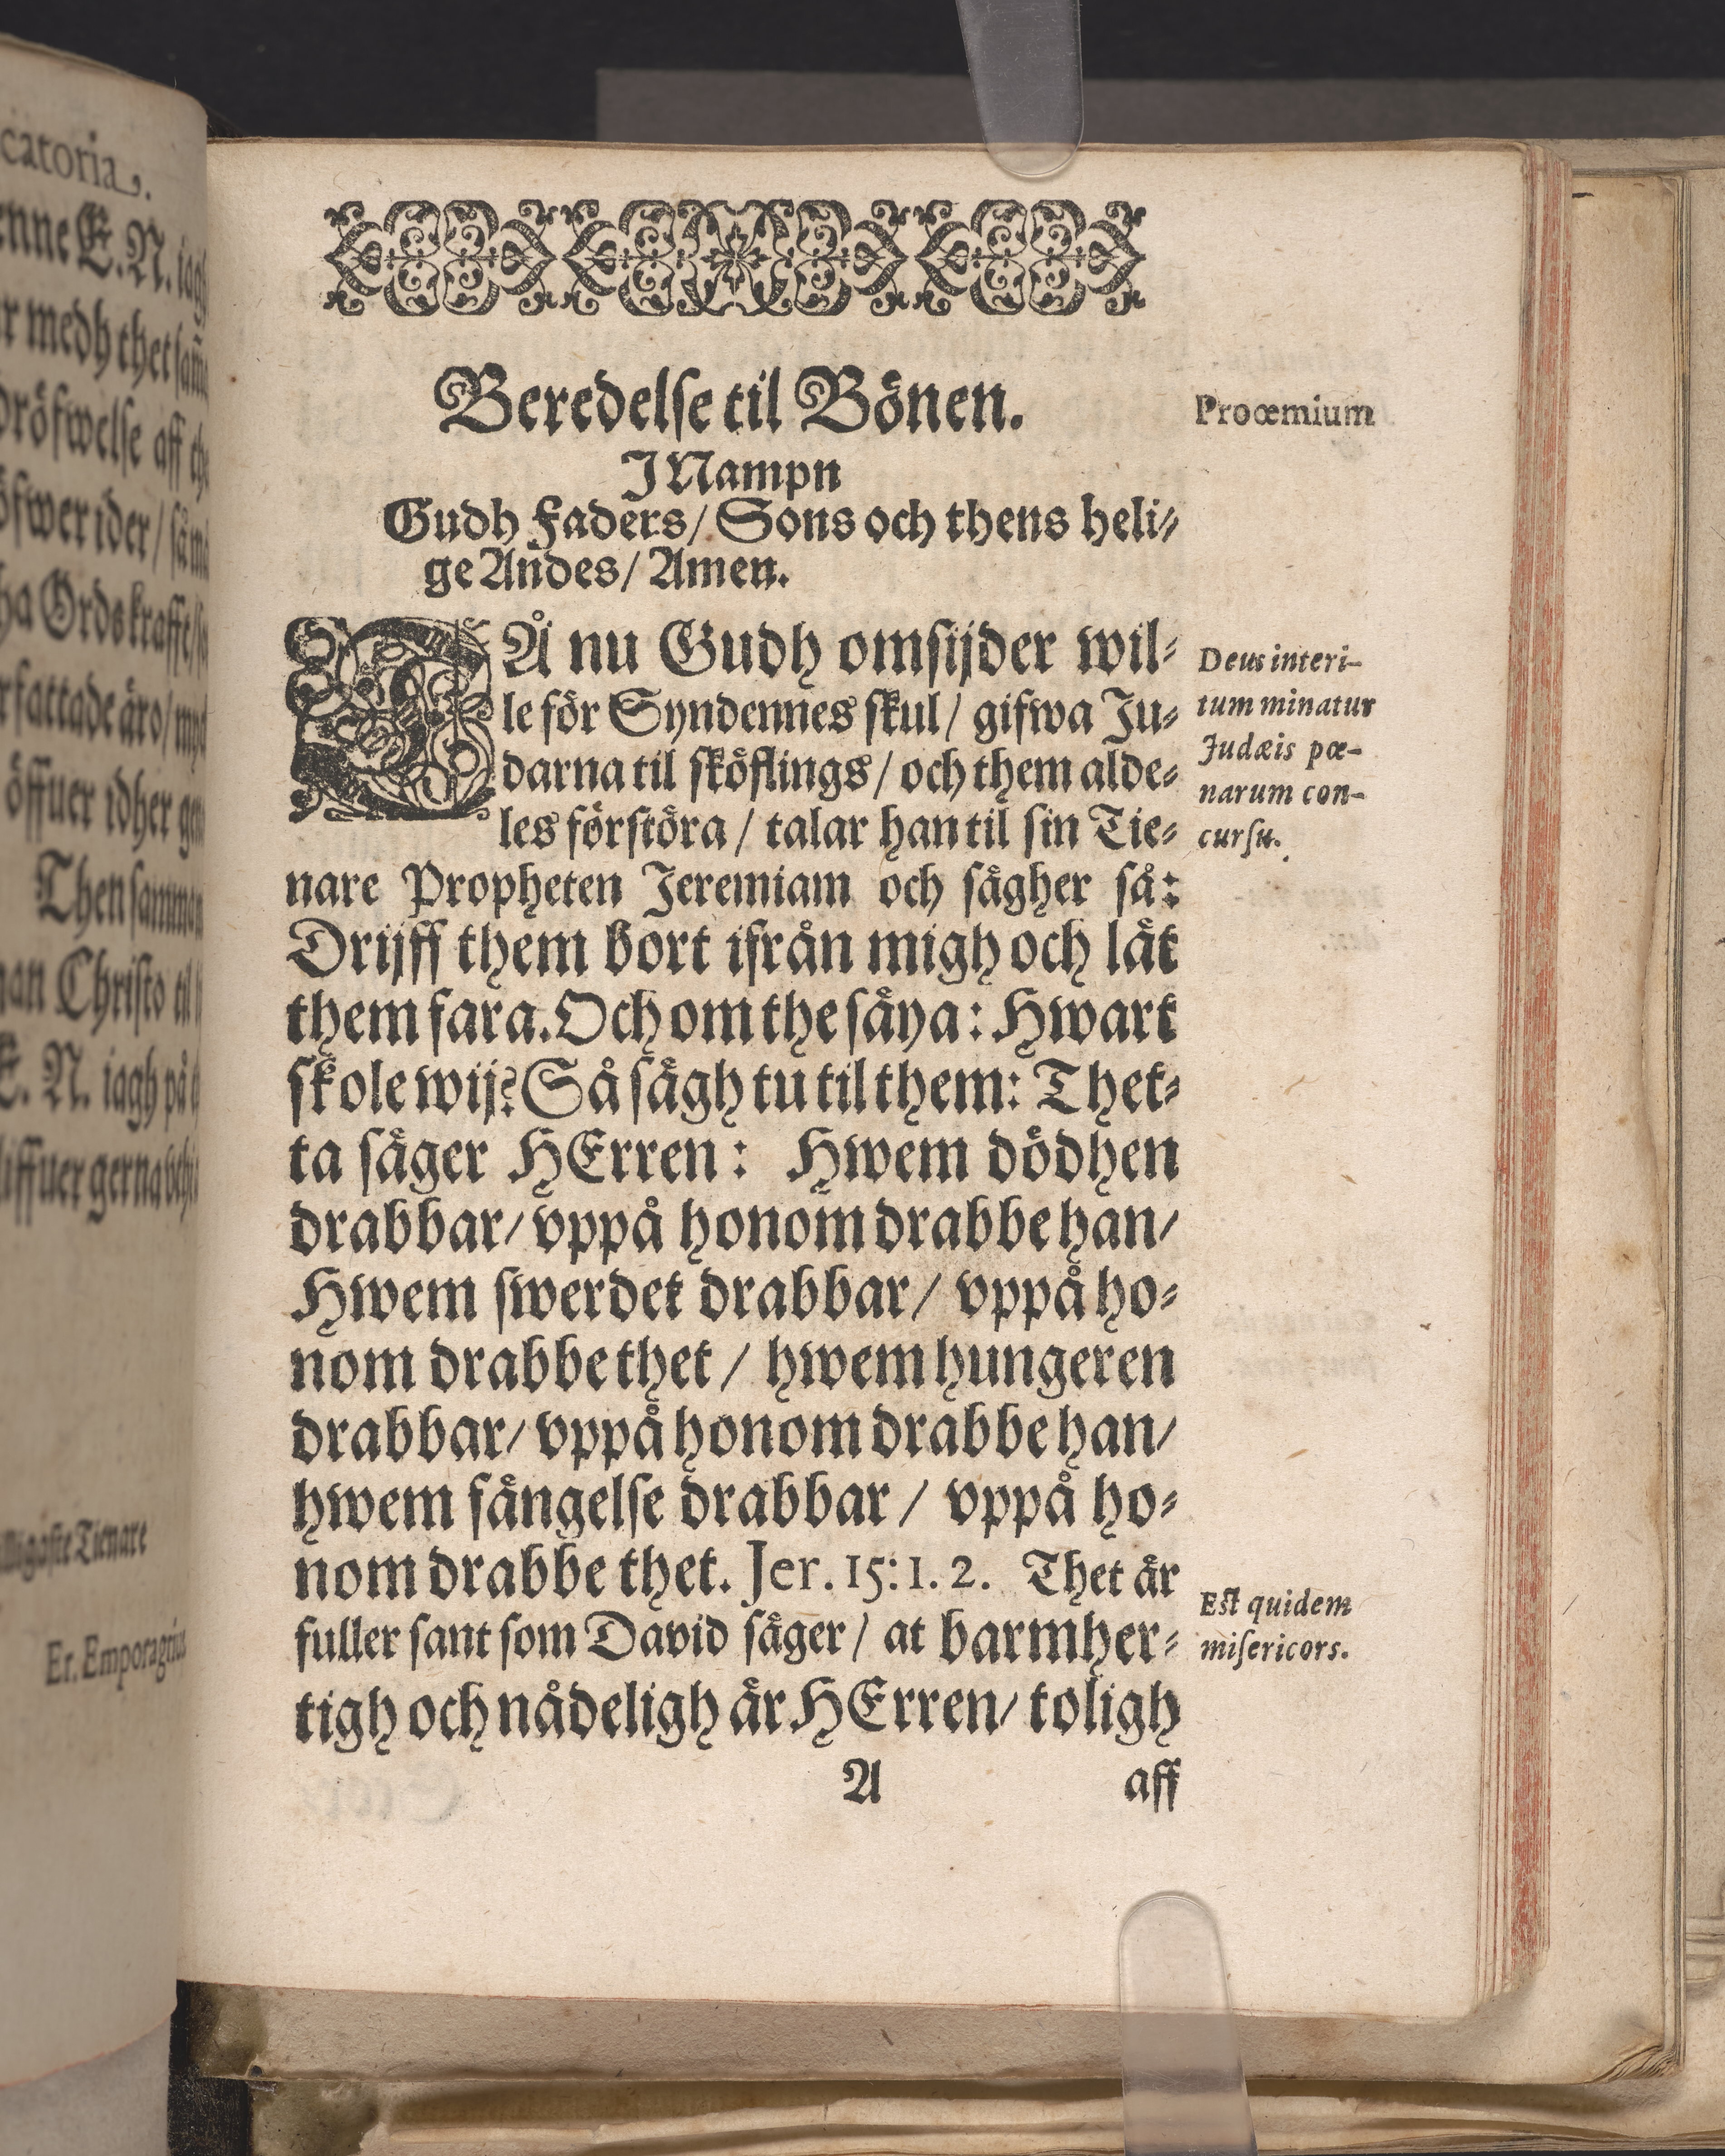 catoria.
enne E. N. iagh
r medh thet
dröfwelse aff
öfwer ider /
Ords krafft
rfattade äro /
öffuer idher
Then samme
an Christo til
E. N. iagh på
liffuer gerna
Tienare
Er. Emporagrius
Beredelse til Bönen.
Proœmium
J Nampn
Gudh Faders / Sons och thens heli⸗
ge Andes / Amen.
DÅ nu Gudh omsijder wil⸗
le för Syndennes skul / gifwa Ju⸗
darna til sköflings / och them alde⸗
les förstöra / talar han til sin Tie⸗
nare Propheten Jeremiam och sägher så:
Drijff them bort ifrån migh och låt
them fara. Och om the säya: Hwart
skole wij? Så sägh tu til them: Thet⸗
ta säger HErren: Hwem dödhen
drabbar / vppå honom drabbe han /
Hwem swerdet drabbar / vppå ho⸗
nom drabbe thet / hwem hungeren
drabbar / vppå honom drabbe han /
hwem fängelse drabbar / vppå ho⸗
nom drabbe thet. Jer. 15: 1. 2. Thet är
fuller sant som David säger / at barmher⸗
tigh och nådeligh är HErren / toligh
A aff
Deus interi-
tum minatur
Judæis pœ-
narum con-
cursu.
Est quidem
misericors.